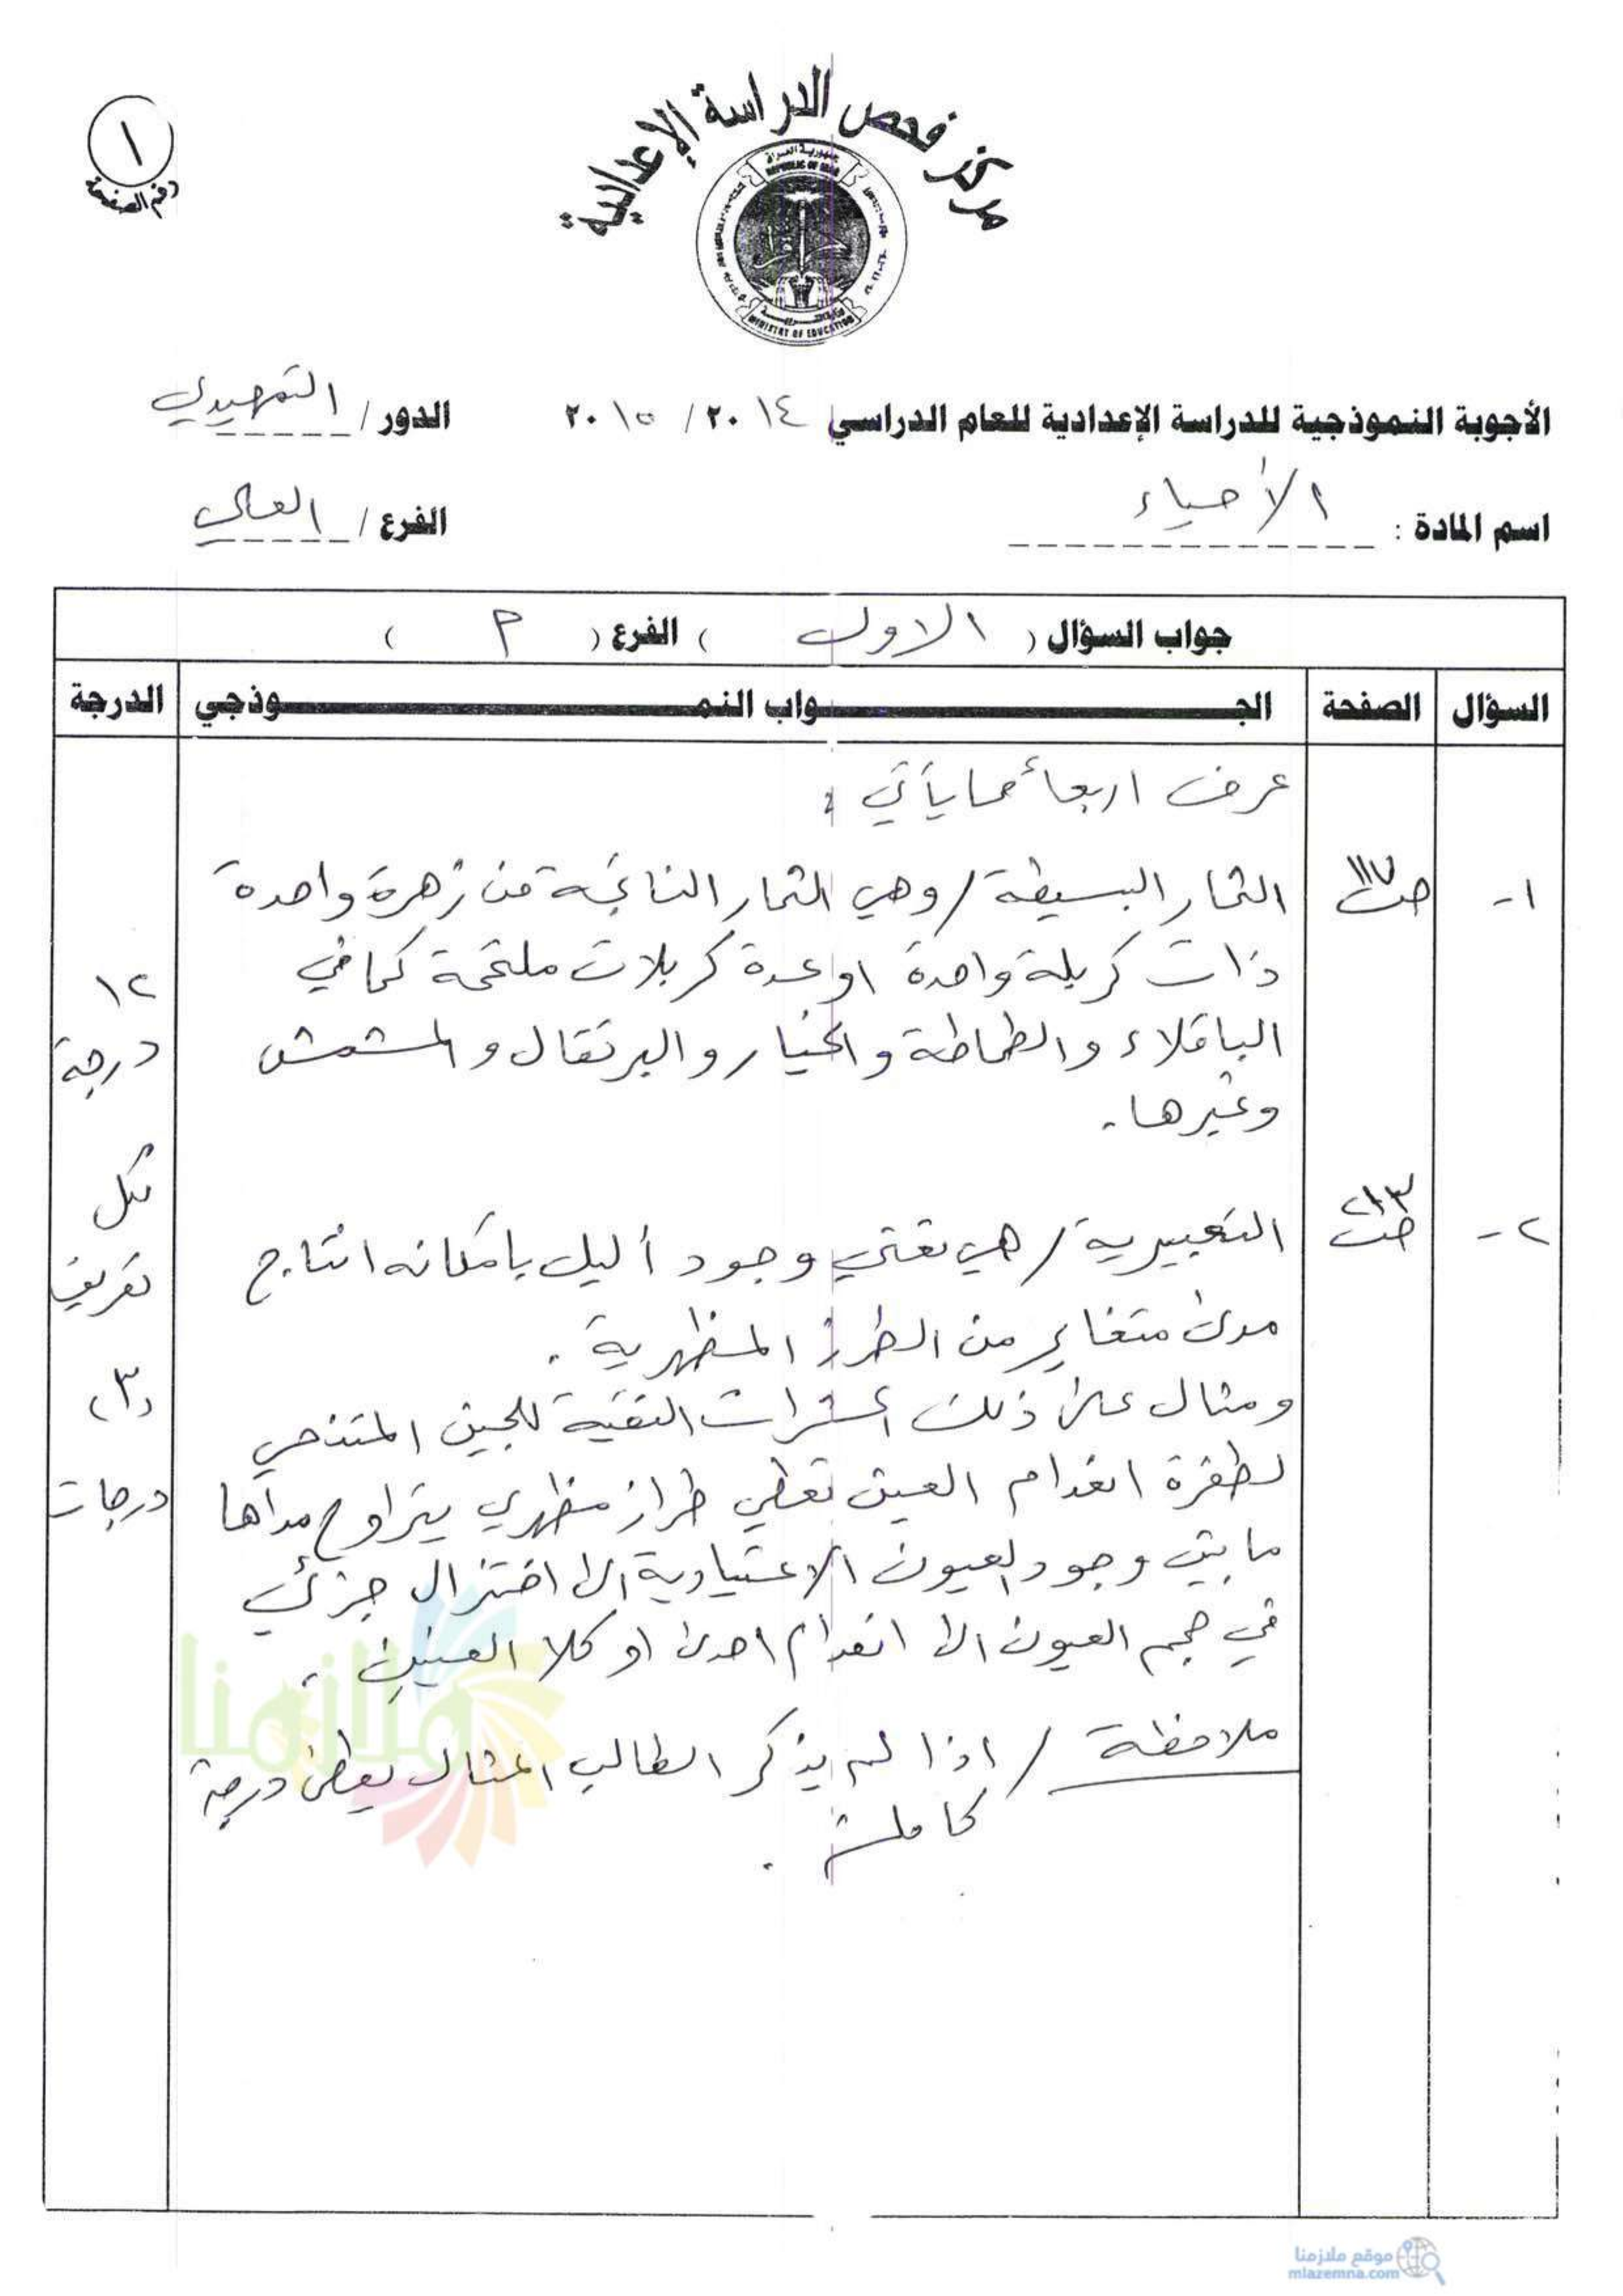 مركز فحص الدراسة الإعدادية
١
رقم الصفحة
جمهورية العراق
REPUBLIC OF IRAQ
MINISTRY OF EDUCATION
الأجوبة النموذجية للدراسة الإعدادية للعام الدراسي ٢٠١٤ / ٢٠١٥ الدور / التمهيدي
اسم المادة : الأحياء الفرع /
جواب السؤال ( الاول ) الفرع ( م )
السؤال الصفحة الجـــواب النمـــوذجي الدرجة
عرف اربعاً مما يأتي :
١- ص١١٧ الثمار البسيطة / وهي الثمار الناتجة من زهرة واحدة
ذات كربلة واحدة او عدة كربلات ملتحمة كما في
الباقلاء والطماطة والخيار والبرتقال والمشمش
وغيرها .
١٢
درجة
لكل
تعريف
(٣)
درجات
٢- ص٢١٣ التعبيرية / هي تعني وجود أليل بامكانه انتاج
مدى متغاير من الطرز المظهرية .
ومثال على ذلك الحشرات النقية للجين المتنحي
لطفرة انعدام العين تعطي طراز مظهري يتراوح مداها
ما بين وجود العيون الاعتيادية الى اختزال جزئي
في حجم العيون الى انعدام احدى او كلا العينين .
ملاحظة / اذا لم يذكر الطالب المثال يعطى درجة
كاملة .
ملازمنا
موقع ملازمنا
mlazemna.com